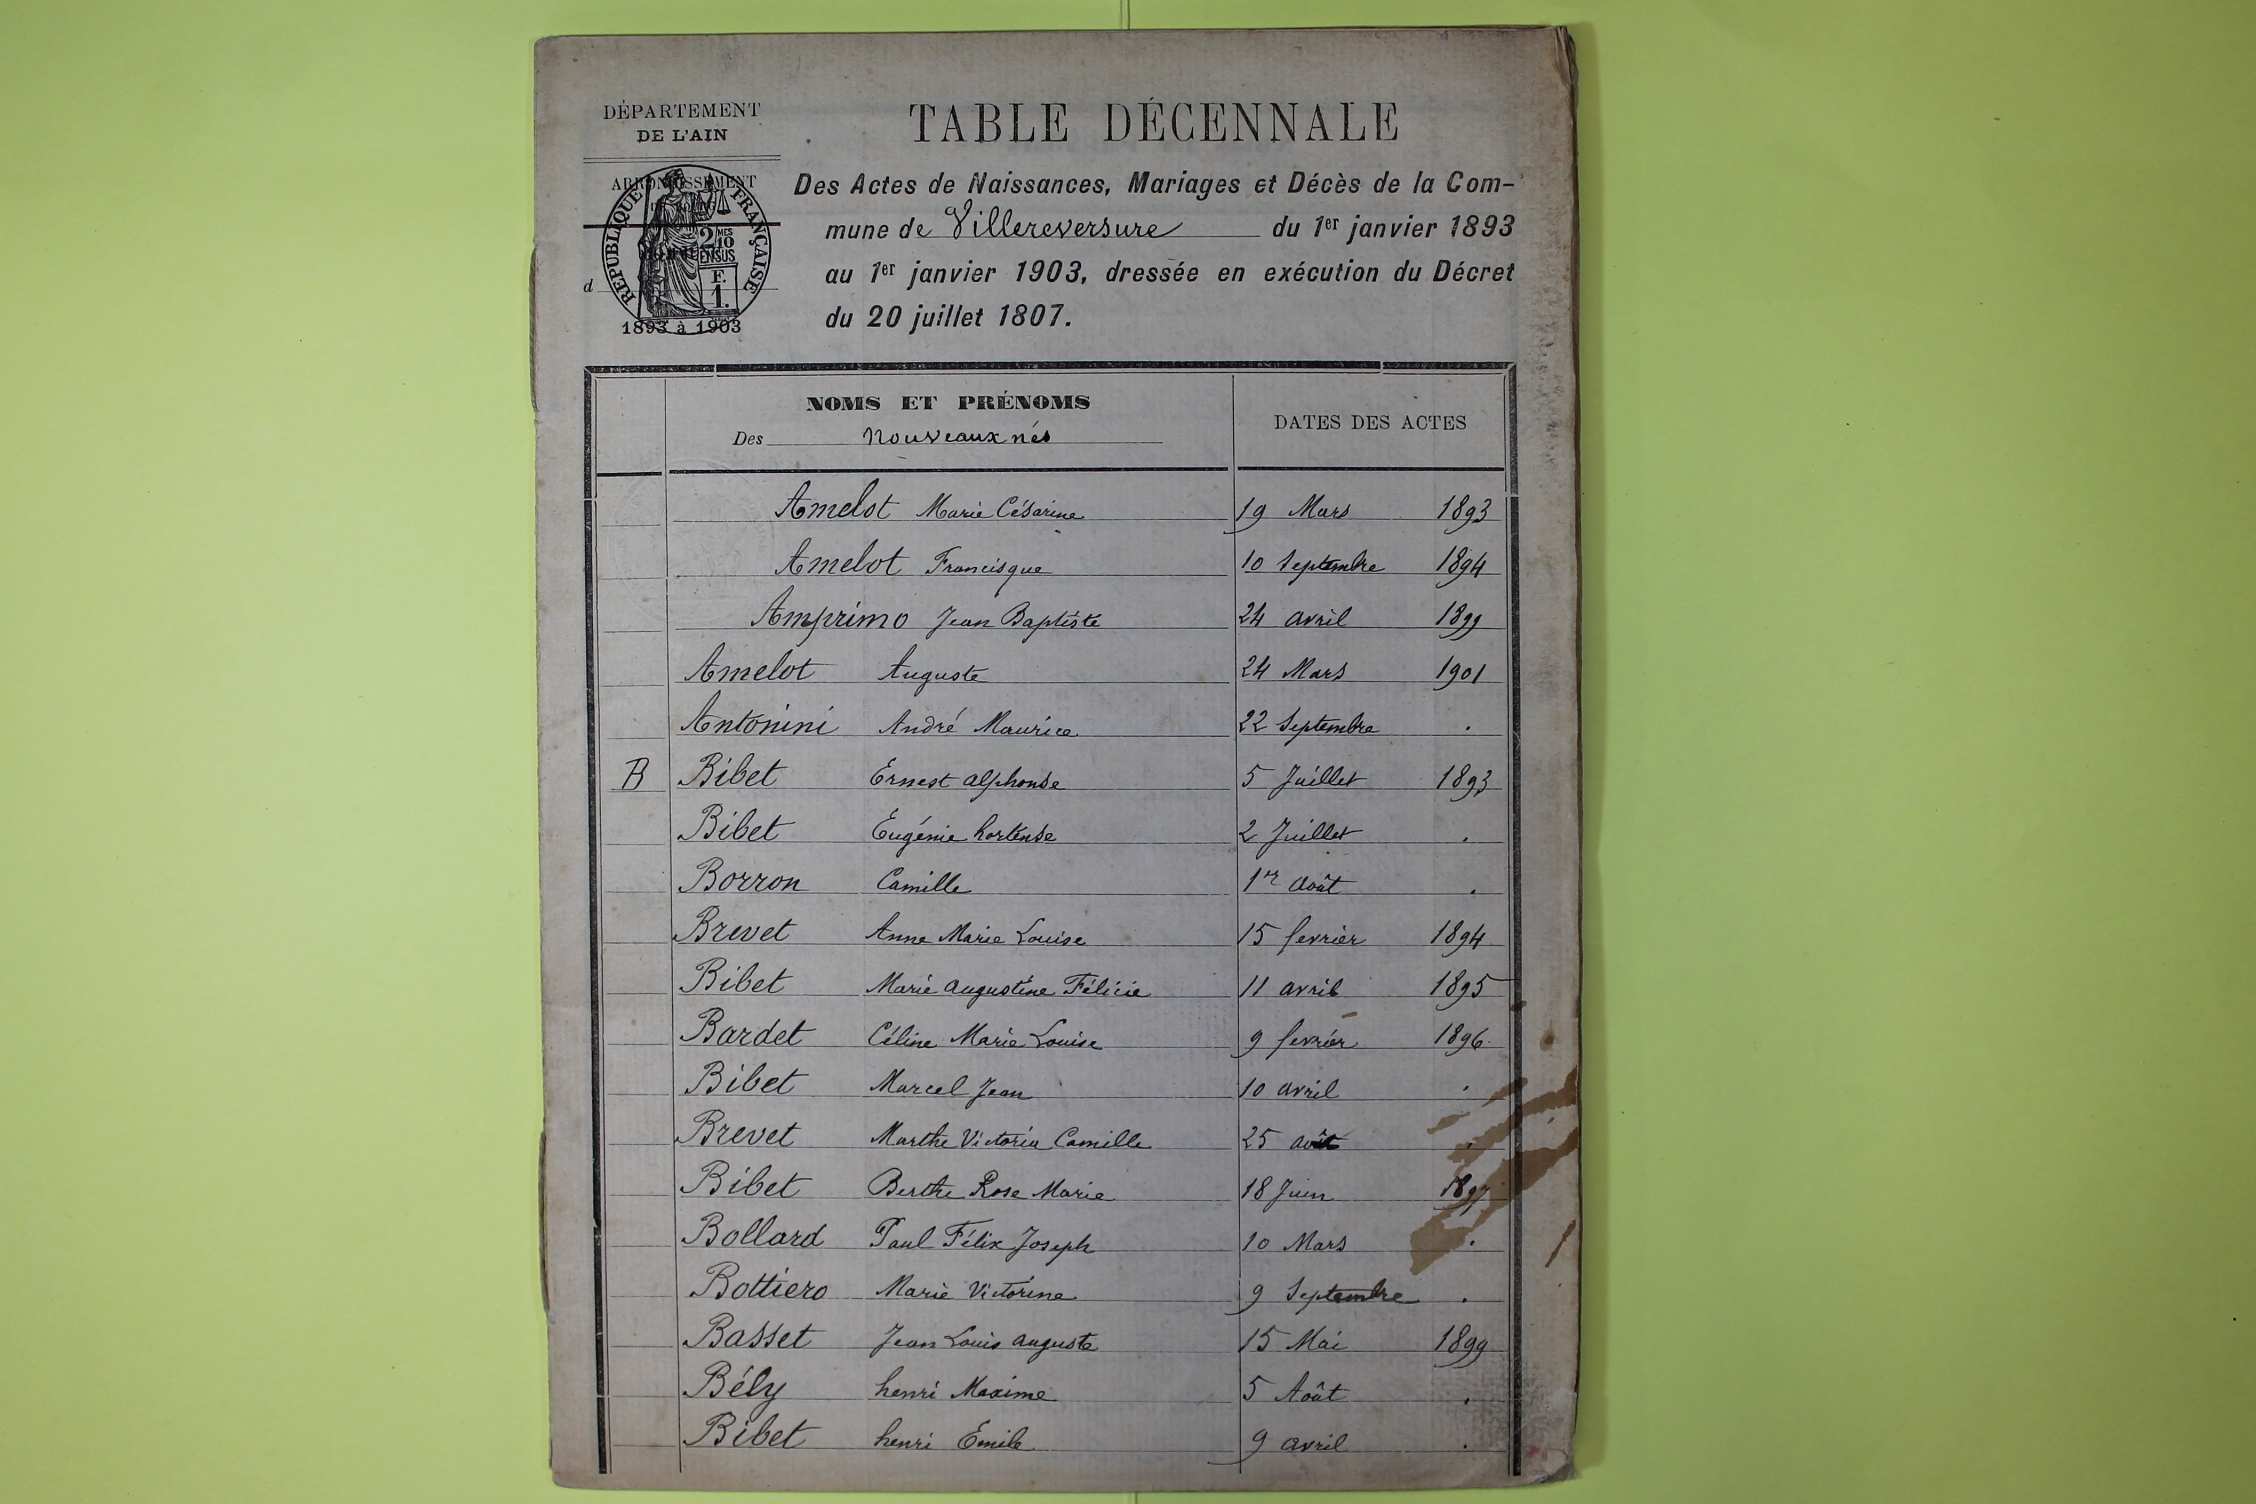 DÉPARTEMENT
DE L'AIN
ARRONDISSEMENT
RÉPUBLIQUE FRANÇAISE
2 MES
10
EN SUS
F.
1.
d
1893 à 1903
TABLE DÉCENNALE
Des Actes de Naissances, Mariages et Décès de la Com-
mune de Villereversure du 1er janvier 1893
au 1er janvier 1903, dressée en exécution du Décret
du 20 juillet 1807.
NOMS ET PRÉNOMS
Des Nouveaux nés
DATES DES ACTES
Amelot Marie Césarine 19 Mars 1893
Amelot Francisque 10 Septembre 1894
Amprimo Jean Baptiste 24 avril 1899
Amelot Auguste 24 Mars 1901
Antonini André Maurice 22 Septembre .
B Bibet Ernest alphonse 5 Juillet 1893
Bibet Eugénie hortense 2 Juillet .
Borron Camille 1er août .
Brevet Anne Marie Louise 15 fevrier 1894
Bibet Marie augustine Félicie 11 avril 1895
Bardet Céline Marie Louise 9 fevrier 1896
Bibet Marcel Jean 10 avril .
Brevet Marthe Victoria Camille 25 août .
Bibet Berthe Rose Marie 18 Juin 1897
Bollard Paul Félix Joseph 10 Mars .
Bottiero Marie Victorine 9 Septembre .
Basset Jean Louis auguste 15 Mai 1899
Bély henri Maxime 5 Août .
Bibet henri Emile 9 avril .